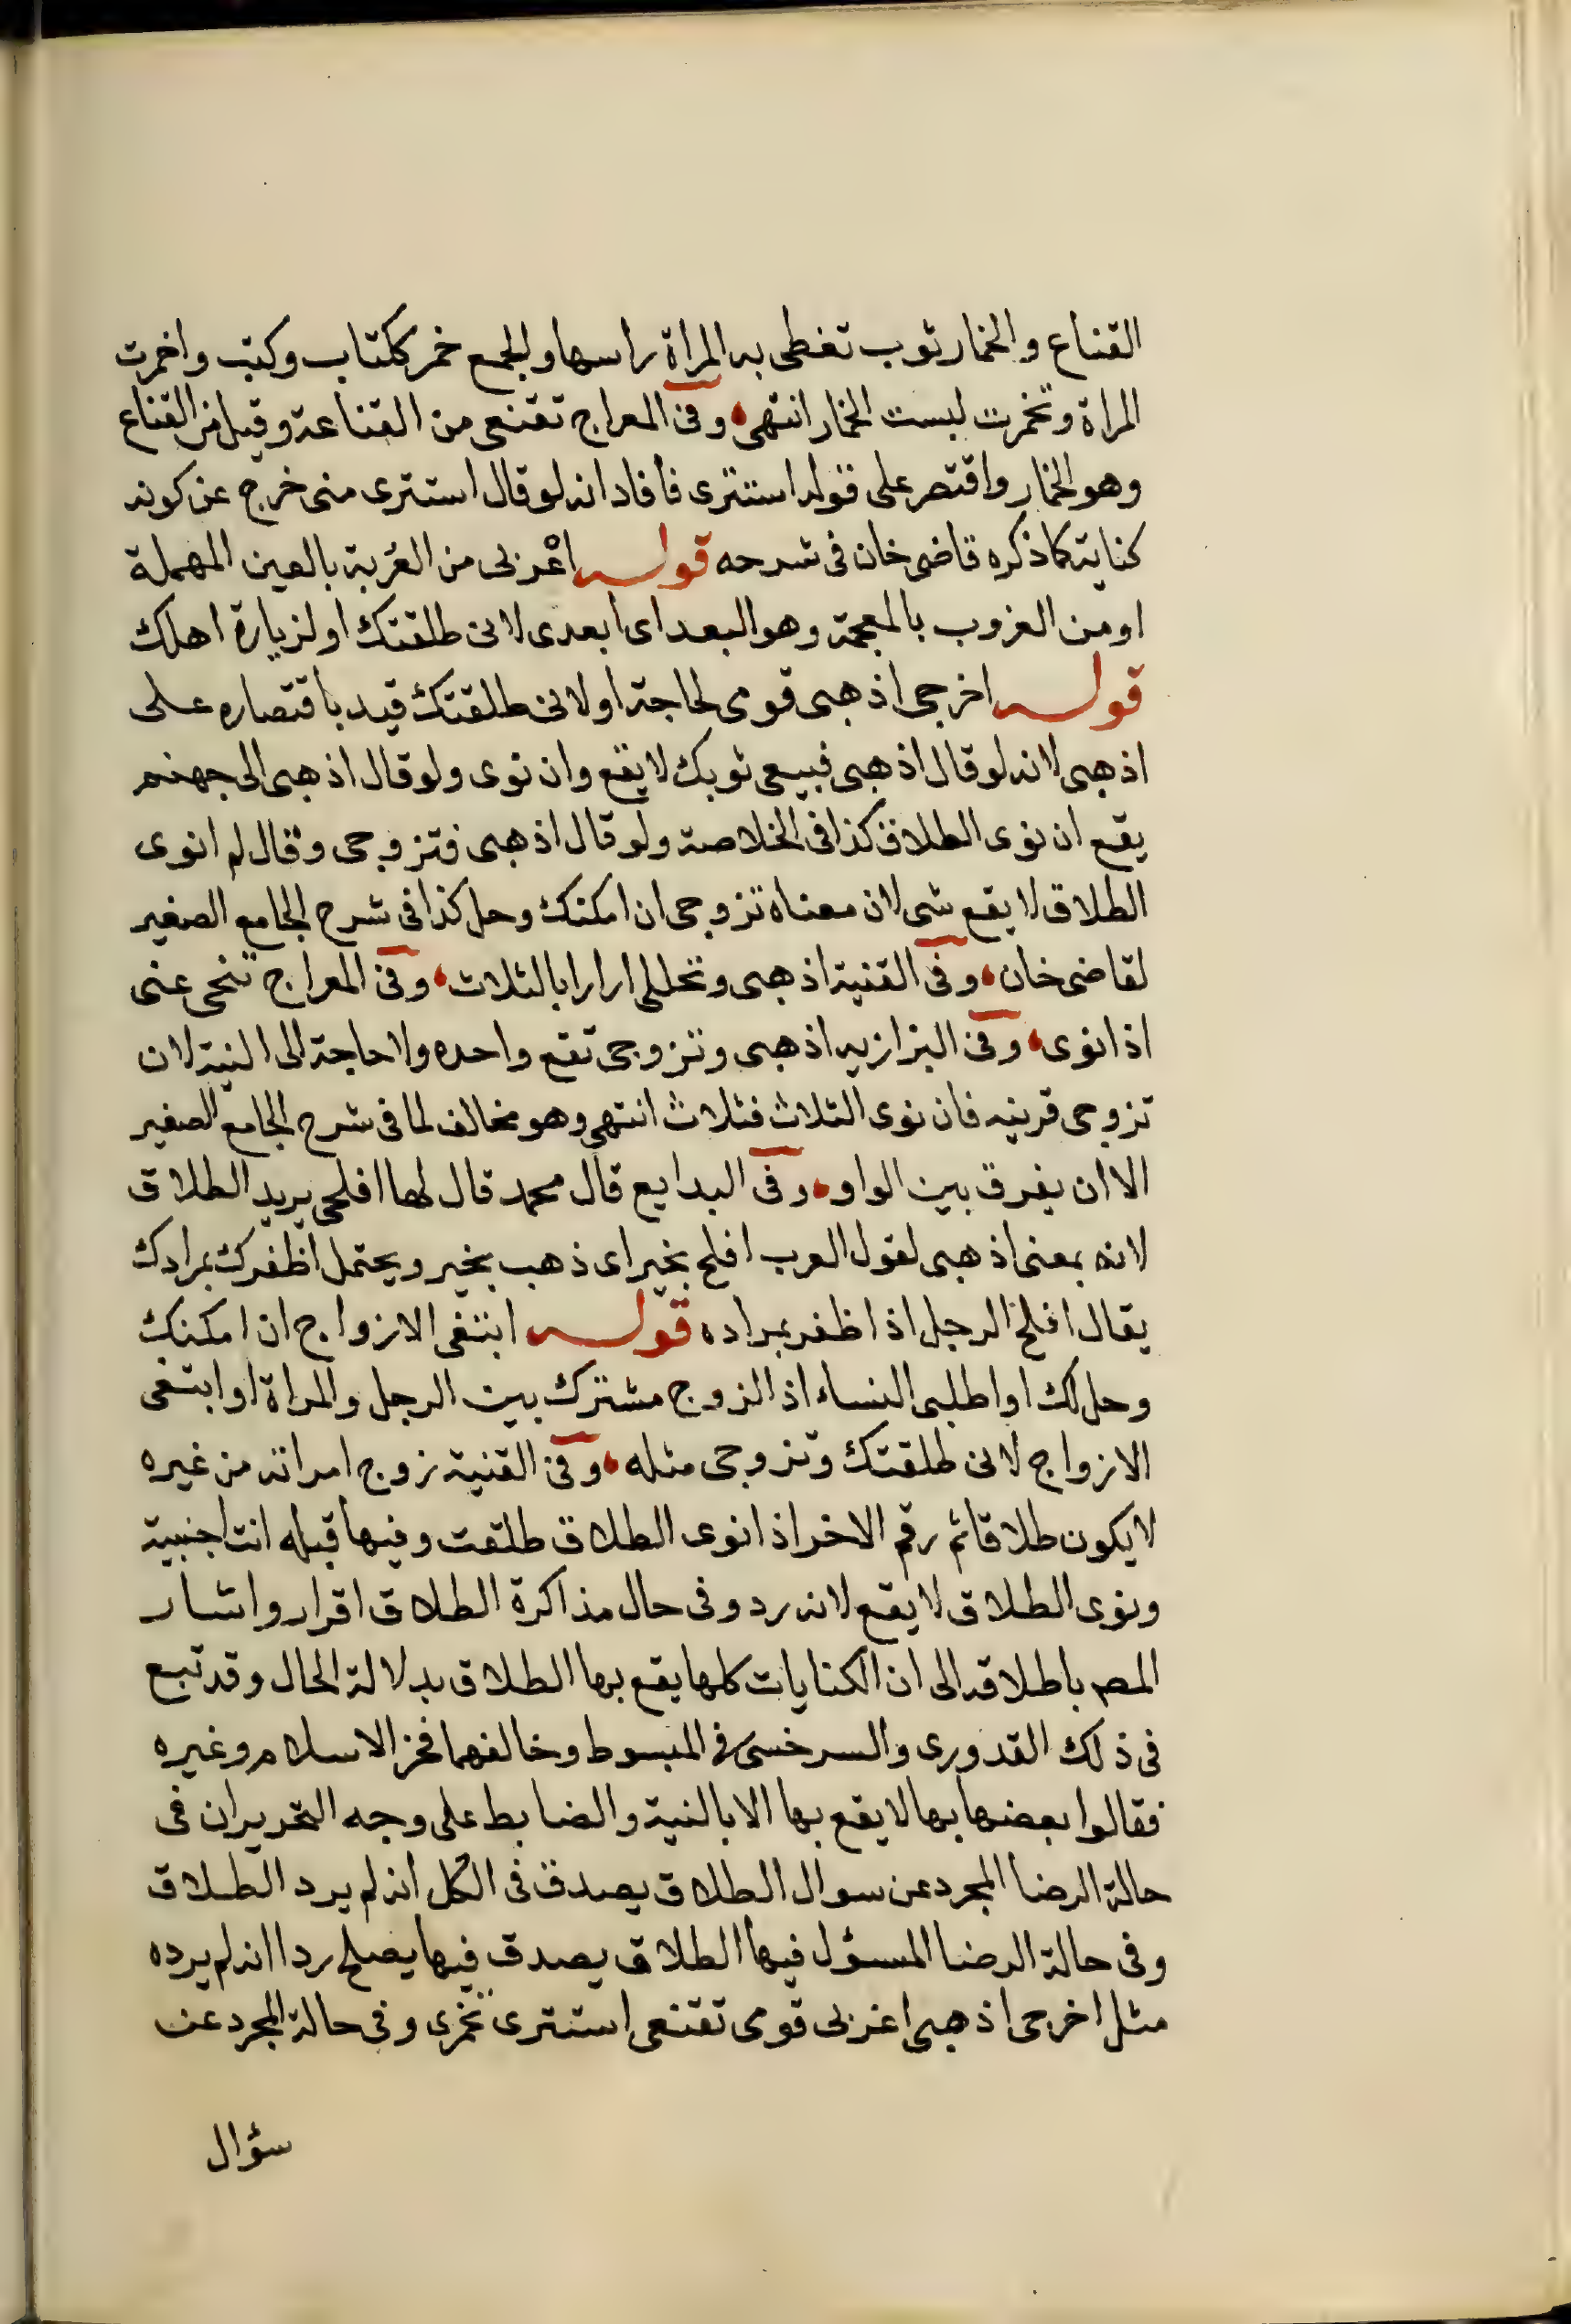 القناع والخمار ثوب تغطى به المراة راسها والجمع خمر ككتاب وكتب واخمرت
المراة وتخمرت لبست الخمار انتهى وفى المعراج تقنعى من القناعة وقيل من القناع
وهو الخمار واقتصر على قوله استترى فافاد انه لو قال استترى منى خرج عن كونه
كناية كما ذكره قاضى خان فى شرحه قوله اعزبى من العزبة بالعين المهملة
او من الغروب بالمعجمة وهو البعد اى ابعدى لانى طلقتك او لزيارة اهلك
قوله اخرجى اذهبى قومى لحاجة او لانى طلقتك قيد باقتصاره على
اذهبى لانه لو قال اذهبى فبيعى ثوبك لا يقع وان نوى ولو قال اذهبى الى جهنم
يقع ان نوى الطلاق كذا فى الخلاصة ولو قال اذهبى فتزوجى وقال لم انوى
الطلاق لا يقع شى لان معناه تزوجى ان امكنك وحل كذا فى شرح الجامع الصغير
لقاضى خان وفى القنية اذهبى وتحللى ارارا بالثلاث وفى المعراج تنحى عنى
اذا نوى وفى البزازيه اذهبى وتزوجى تقع واحده ولا حاجة الى النية لان
تزوجى قرينه فان نوى الثلاث فثلاث انتهى وهو مخالف لما فى شرح الجامع الصغير
الا ان يفرق بين الواو وفى البدايع قال محمد قال لها افلحى يريد الطلاق
لانه بمعنى اذهبى لقول العرب افلح بخير اى ذهب بخير ويحتمل اظفرك بمرادك
يقال افلح الرجل اذا ظفر بمراده قوله ابتغى الازواج ان امكنك
وحل لك او اطلبى النساء اذ الزوج مشترك بين الرجل والمراة او ابتغى
الازواج لانى طلقتك وتزوجى مثله وفى القنية زوج امراته من غيره
لا يكون طلاقا ثم رقم الاخر اذا نوى الطلاق طلقت وفيها قبله انت اجنبية
ونوى الطلاق لا يقع لانه رد وفى حال مذاكرة الطلاق اقرار واشار
المص باطلاقه الى ان الكنايات كلها يقع بها الطلاق بدلالة الحال وقد تبع
فى ذلك القدورى والسرخسى فى المبسوط وخالفهما فخز الاسلام وغيره
فقالوا بعضها بها لا يقع بها الا بالنية والضابط على وجه التحرير ان فى
حالة الرضا المجرد عن سوال الطلاق يصدق فى الكل انه لم يرد الطلاق
وفى حالة الرضا المسؤل فيها الطلاق يصدق فيها يصلح ردا انه لم يرده
مثل اخرجى اذهبى اغربى قومى تقنعى استترى تخمرى وفى حالة المجرد عن
سؤال